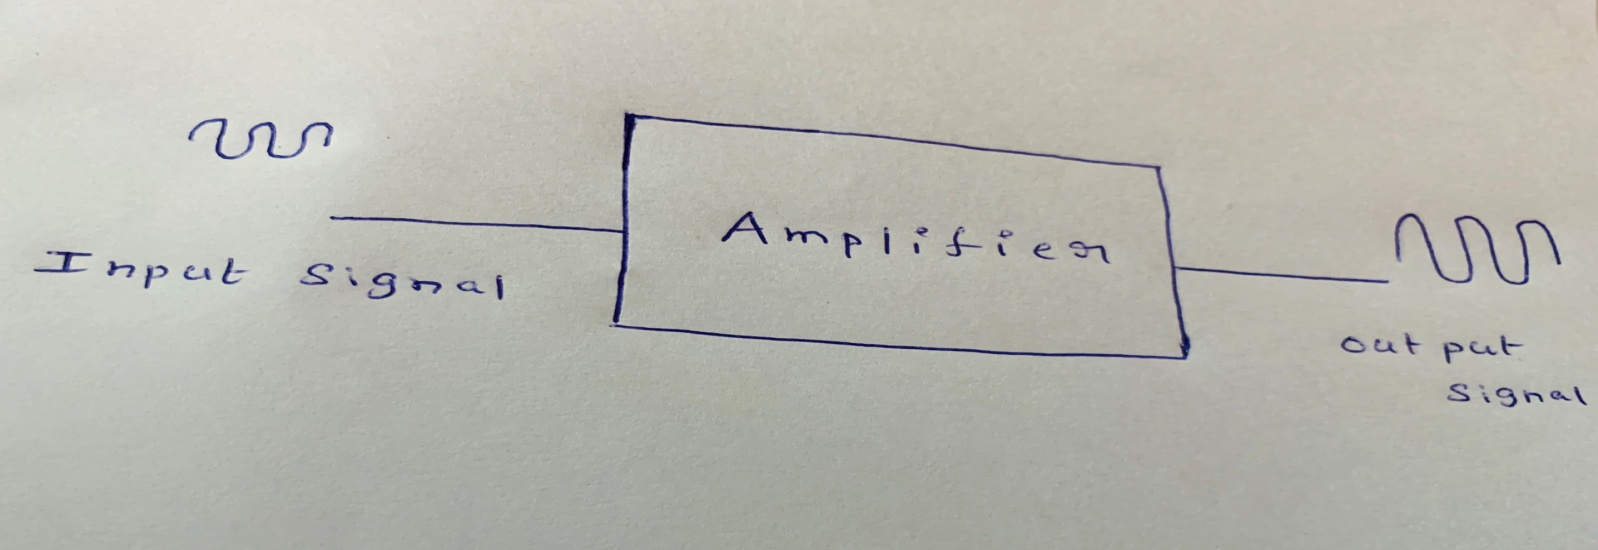 Input Signal
Amplifier
out put
Signal